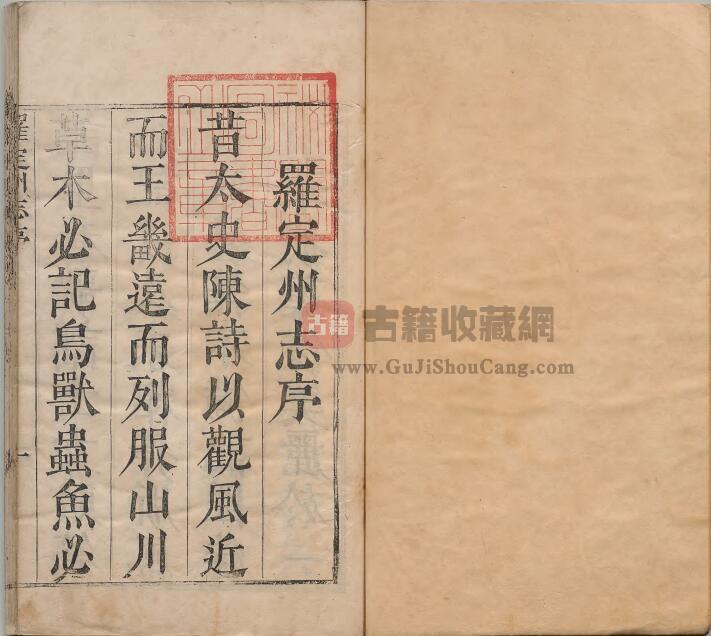 羅定州志序
昔太史陳詩以觀風近
而王畿遠而列服山川
草木必記鳥獸蟲魚必
羅定州志序
一
古籍
古籍收藏網
www.GuJiShouCang.com